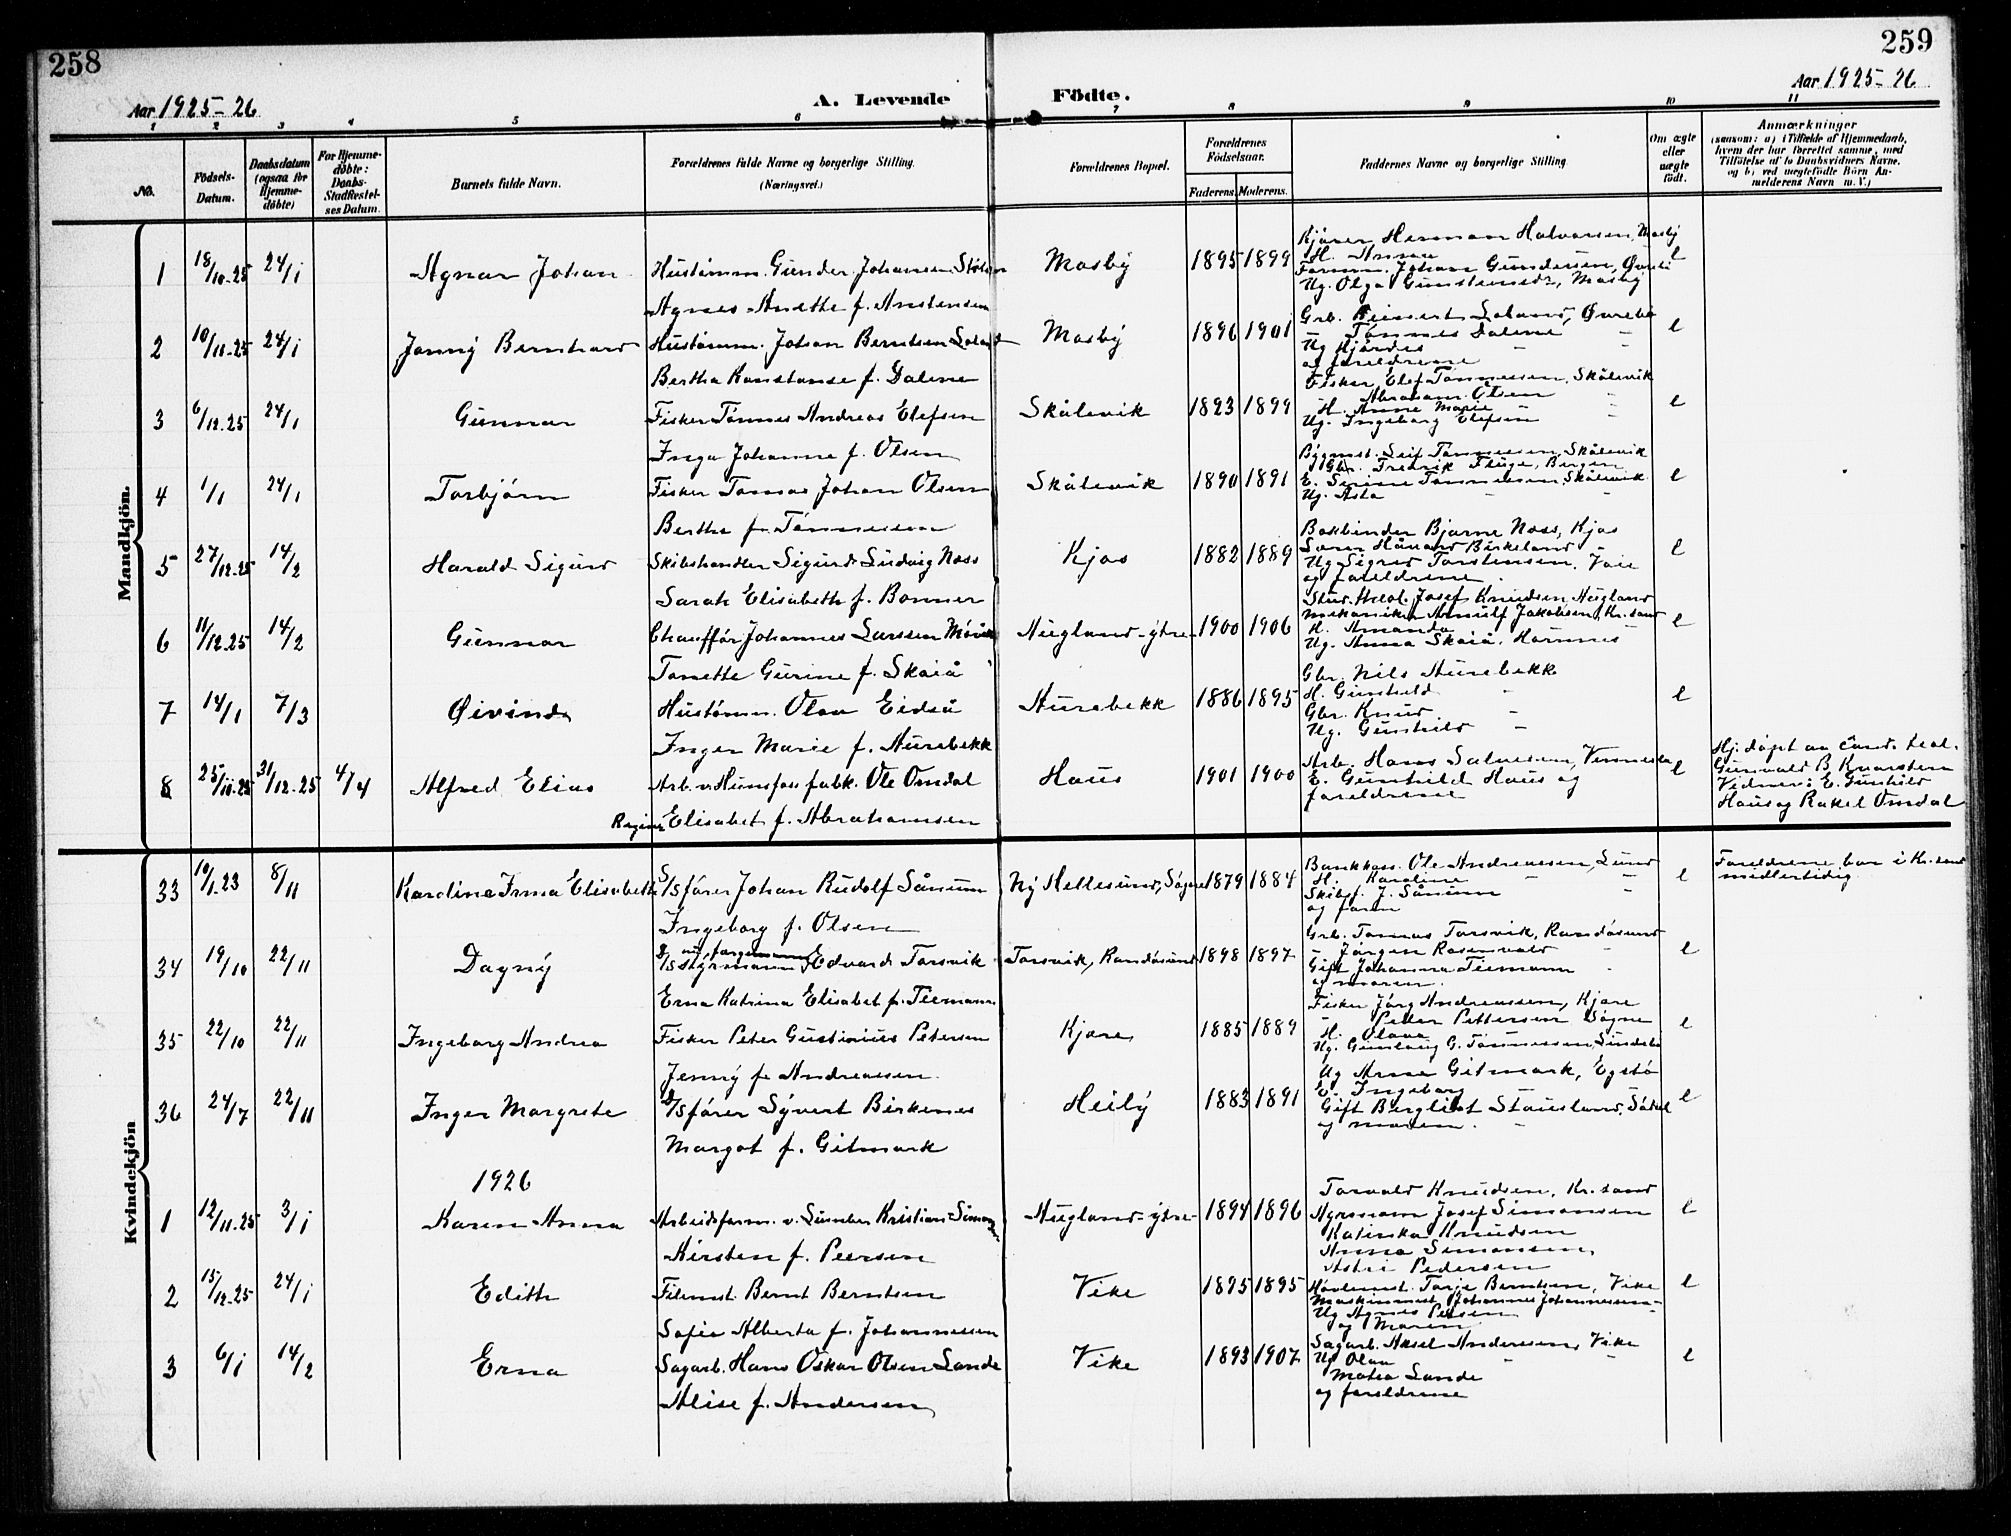 258
259
Aar 1925-26
A. Levende Födte.
Aar 1925-26
1 2 3 4 5 6 7 8 9 10 11
No.
Födsels-Datum.
Daabsdatum (ogsaa for Hjemme-döbte)
For Hjemme-döbte: Daabs-Stadfæstel-ses Datum.
Barnets fulde Navn.
Forældrenes fulde Navne og borgerlige Stilling. (Næringsvei.)
Forældrenes Bopæl.
Forældrenes Födselsaar.
Faderens. Moderens.
Faddernes Navne og borgerlige Stilling.
Om ægte eller uægte født.
Anmærkninger
(saasom: a) i Tilfælde af Hjemmedaab,
hvem der har forrettet samme, med
Tilføielse af to Daabsvidners Navne,
og b) ved uægtefødte Börn An-
melderens Navn m. V.)
Mandkjön.
1 18/10-25 24/1 Agnar Johan Hustömm. Gunder Johansen
Agnes Anethe f. Anstensen
Mosby 1895 1899
Kjörer Herman Halvorsen, Mosby
H. Anna
Johan Gundersen, Øvrebö
Ug. Olga Gunstensdr, Mosby
e
2 10/11-25 24/1 Jonny Bernhard Hustömm. Johan Berntsen Loland
Bertha Konstanse f. Dalene
Mosby 1896 1901
Grb. Reinert Loland, Øvrebö
" Tönnes Dalene "
Ug Hjördes " "
og foreldrene
e
3 6/12-25 24/1 Gunnar Fisker Tönnes Andreas Elefsen
Inga Johanne f. Olsen
Skålevik 1893 1899
Fisker Elef Tönnessen, Skålevik
Abraham Olsen "
H. Anne Marie "
Ug. Ingeborg Elefsen "
e
4 1/1 24/1 Torbjörn Fisker Tomas Johan Olsen
Berthe f. Tönnessen
Skålevik 1890 1891
Bygmst. Leif Tönnessen, Skålevik
Gbr. Fredrik Fluge, Bergen
E. Serine Tönnessen, Skålevik
Ug. Asta " "
e
5 27/12-25 14/2 Harald Sigurd Skibshandler Sigurd Ludvig Næss
Sarah Elisabeth f. Bonner
Kjos 1882 1889
Bokbinder Bjarne Næss, Kjos
Håvard Birkeland "
Ug Sigrid Torstensen, Voie
og foreldrene.
e
6 11/12-25 14/2 Gunnar Chaufför Johannes Larssen
Tonette Gurine f. Skaiå
Augland-ytre 1900 1906
Stud. Josef Knudsen Augland
Mekaniker Arnulf Jakobsen, Kr.sand
H. Amanda
Ug. Anna Skaiå, Hornnes
e
7 14/1 7/3 Øivind Hustömm. Olav Eidså
Inger Marie f. Aurebekk
Aurebekk 1886 1895
Gbr. Nils Aurebekk
H. Gunhild "
Gbr. Knud "
Ug. Gunhild "
e
8 25/11-25 31/12-25 4/4 Alfred Elias Arb. v. Hunsfos fabk. Ole Omdal
Regine Elisabet f. Abrahamsen
Haus 1901 1900
Arb. Hans Salvesen, Vennesla
E. Gunhild Haus og
foreldrene
e
Hj. döpt av cand. teol.
Gunvald B. Kvarstein
Vidner: E. Gunhild
Haus og Rakel Omdal
Kvindekjön
33 10/1.23 8/11 Karoline Irma Elisabeth S/Sförer Johan Rudolf Sånum
Ingeborg f. Olsen
Ny Hellesund, Søgne 1879 1884
Bankkass. Ole Andreassen, Lund
H. Karoline " "
Skibsf. J. Sånum "
og faren
e
Foreldrene bor i Kr.sand
midlertidig.
34 19/10 22/11 Dagny S/S Styrmann Edvard Torsvik
Erna Katrina Elisabet f. Tiemann
Torsvik, Randösund 1898 1897
Grb. Tomas Torsvik, Randösund
" Jörgen Rosenvold "
Gift Johanna Tiemann "
og moren.
e
35 22/10 22/11 Ingeborg Andrea Fisker Peter Gustinius Petersen
Jenny f. Andreassen.
Kjøre 1885 1889
Fisker Jörg Andreassen, Kjøre
" Peder Pettersen Søgne
H. Olava
Ug. Gunlaug G. Tönnessen,
e
36 24/7 22/11 Inger Margrete S/Sförer Syvert Birkenes
Margot f. Gitmark
Heily 1883 1891
Ug Arne Gitmark, Egsbö
E. Ingeborg "
Gift Bergliot Stausland, Sökul
og moren. "
e
1926
1 12/11-25 3/1 Karen Anna Arbeidsform. v. Lumber Kristian Simonsen
Kirsten f. Peersen
Augland-ytre 1894 1896
Torvald Knudsen, Kr.sand
Agrmann Josef Simonsen
Katinka Knudsen
Anna Simonsen,
Astri Pedersen
e
2 15/12-25 24/1 Edith Filemst. Bernt Berntsen
Sofie Alberta f. Johannessen
Vike 1895 1895
Hövlemst. Torje Berntsen, Vike
Maskinmst. Johannes Johannessen "
Ug Agnes Peersen
og Moren
e
3 6/1 14/2 Erna Sagarb. Hans Oskar Olsen Lande
Alise f. Andersen
Vike 1893 1907
Sagarb. Aksel Andersen, Vike
Ug Olaa " "
Matea Lande
og foreldrene
e